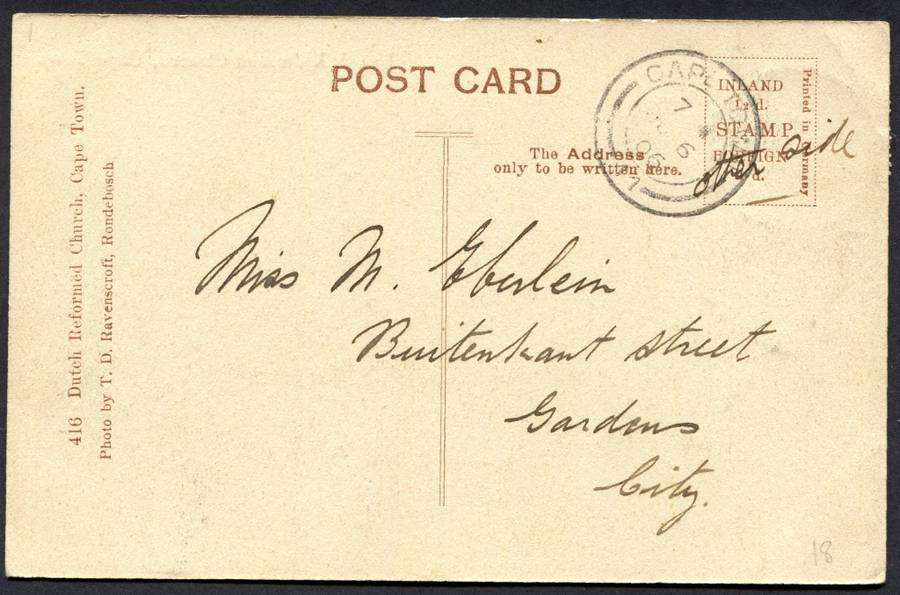 POST CARD
CAPE TOWN
7
6
06
INLAND
½d.
STAMP
FOREIGN
d.
Printed in Germany
other side
The Address
only to be written here.
Miss M. Eberlein
Buitenkant street
Gardens
City.
416 Dutch Reformed Church, Cape Town.
Photo by T. D. Ravenscroft, Rondebosch
18